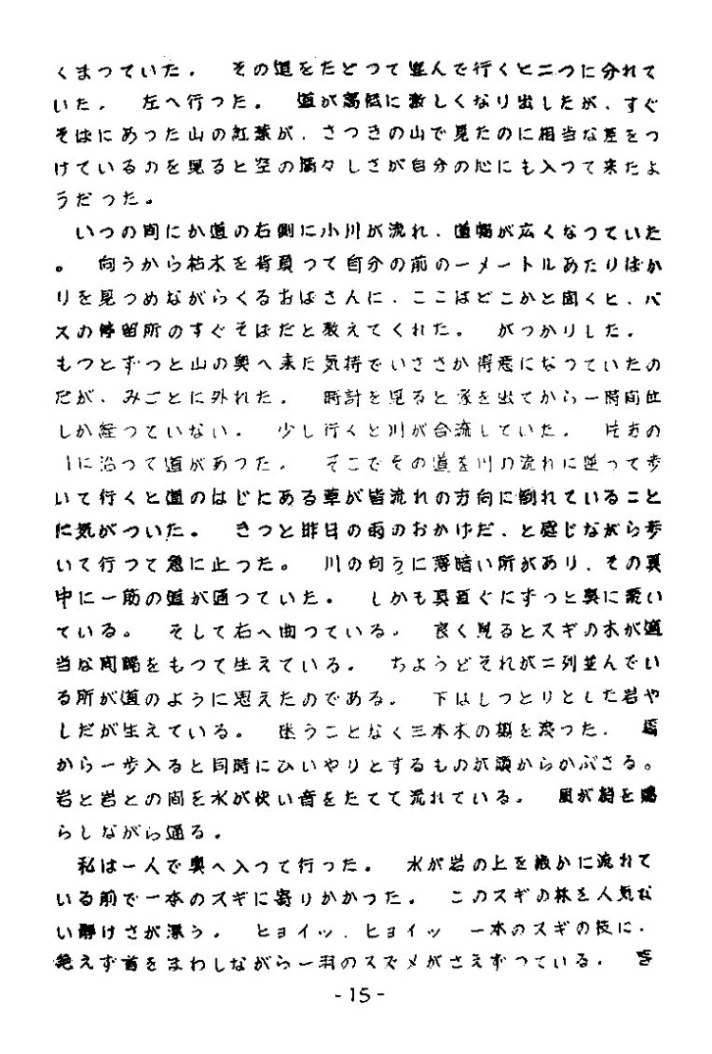 くまつていた。 その道をたどつて並んで行くと二つに分れて
いた。 左へ行つた。 道が高低に激しくなり出したが、すぐ
そばにあつた山の紅葉が、さつきの山で見たのに相当な差をつ
けているのを見ると空の満々しさが自分の心にも入つて来たよ
うだつた。
いつの間にか道の右側に小川が流れ、道幅が広くなつていた
。 向うから枯木を背負つて自分の前の一メートルあたりばか
りを見つめながらくるおばさんに、ここはどこかと聞くと、バ
スの停留所のすぐそばだと教えてくれた。 がつかりした。
もつとずつと山の奥へ来た気持でいささか得意になつていたの
だが、みごとに外れた。 時計を見ると家を出てから一時間
しか経つていない。 少し行くと川が合流していた。 片方の
に沿つて道があつた。 そこでその道を川の流れに逆つて歩
いて行くと道のはじにある草が皆流れの方向に倒れていること
に気がついた。 きつと昨日の雨のおかげだ、と感じながら歩
いて行つて急に止つた。 川の向うに薄暗い所があり、その真
中に一筋の道が通つていた。 しかも真直ぐにずつと奥に続い
ている。 そして右へ曲つている。 良く見るとスギの木が適
当な間隔をもつて生えている。 ちようどそれが二列並んでい
る所が道のように思えたのである。 下はしつとりとした岩や
しだが生えている。 迷うことなく三本木の橋を渡つた。 橋
から一歩入ると同時にひいやりとするものが頭からかぶさる。
岩と岩との間を水が快い音をたてて流れている。 風が樹を鳴
らしながら通る。
私は一人で奥へ入つて行つた。 水が岩の上を微かに流れて
いる前で一本のスギに寄りかかつた。 このスギの林を人気な
い静けさが漂う。 ヒョイッ、ヒョイッ 一本のスギの枝に、
絶えず首をまわしながら一羽のスズメがさえずつている。 き
-15-